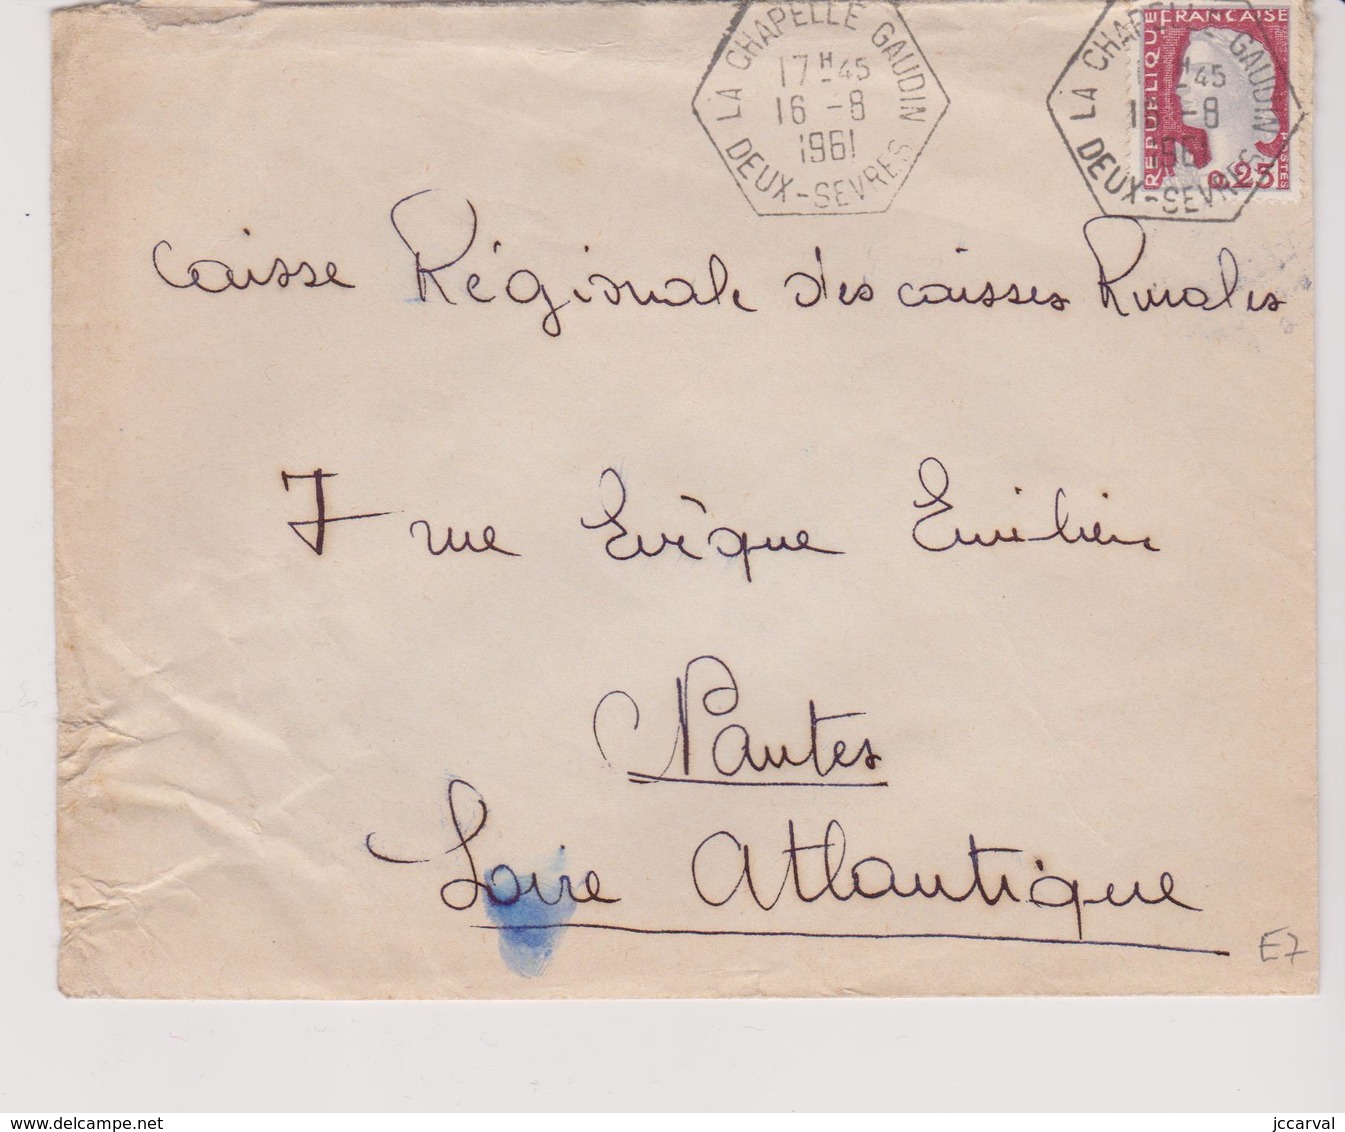 LA CHAPELLE GAUDIN
17H45
16-8
1961
DEUX-SEVRES
LA CHAPELLE GAUDIN
H45
16-8
1961
DEUX-SEVRES
REPUBLIQUE FRANCAISE
POSTES
0,25
Caisse Régionale des caisses Rurales
7 rue Evêque Emilien
Nantes
Loire Atlantique
E7
www.delcampe.net
jccarval